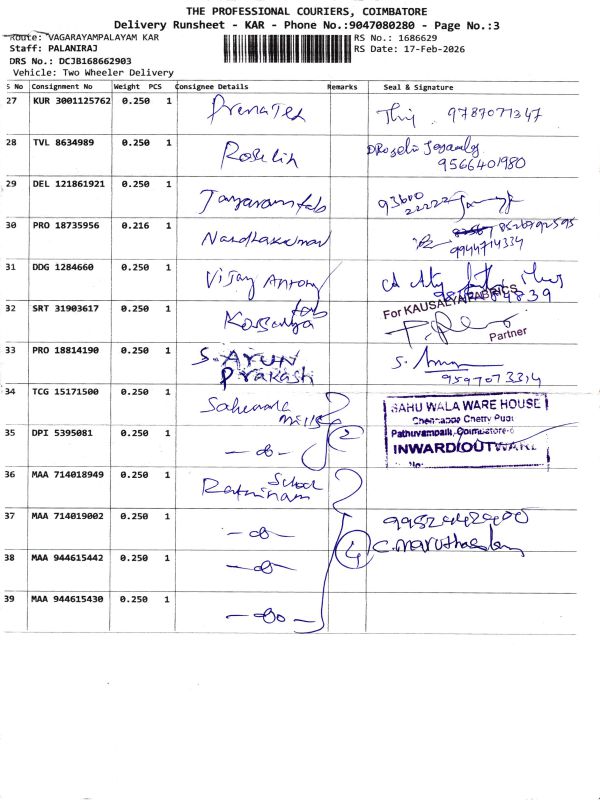 THE PROFESSIONAL COURIERS, COIMBATORE
Delivery Runsheet - KAR - Phone No.:9047080280 - Page No.:3
Route: VAGARAYAMPALAYAM KAR
RS No.: 1686629
Staff: PALANIRAJ
RS Date: 17-Feb-2026
DRS No.: DCJB168662903
Vehicle: Two Wheeler Delivery
S No Consignment No Weight PCS Consignee Details Remarks Seal & Signature
27 KUR 3001125762 0.250 1 PremaTex 9787071347
28 TVL 8634989 0.250 1 Roselin
9566401980
29 DEL 121861921 0.250 1 Jayaram fab 93600
22222
30 PRO 18735956 0.216 1 Nandhakumar 8526792595
9944714334
31 DDG 1284660 0.250 1 Vijay Antony
32 SRT 31903617 0.250 1 Kousalya fab
For KAUSALYA FABRICS
Partner
33 PRO 18814190 0.250 1 S. ARUN
Prakash
9597073314
34 TCG 15171500 0.250 1
mills
SAHU WALA WARE HOUSE
Chennappa Chetty Pudi
35 DPI 5395081 0.250 1 2
Pathuvampalli, Coimbatore-6
INWARD/OUTWARD
No:
36 MAA 714018949 0.250 1 Ratninam School
37 MAA 714019002 0.250 1
4
38 MAA 944615442 0.250 1
39 MAA 944615430 0.250 1